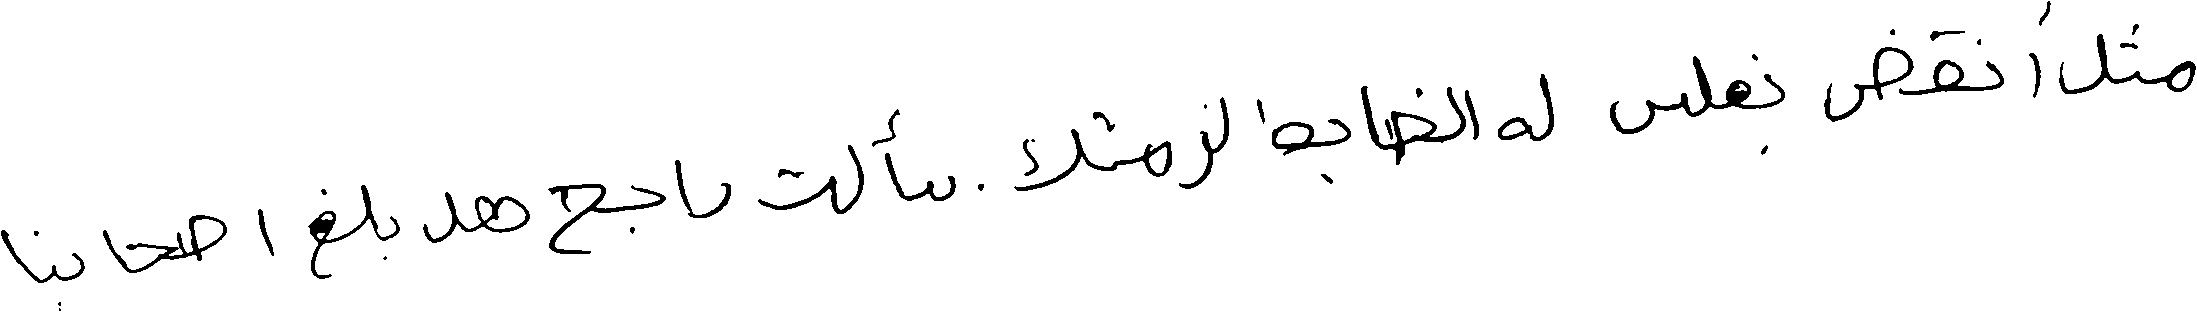 مثل أنقض بفلس له الضابط لزمتك. سألت راجح هل بلغ اصحابنا